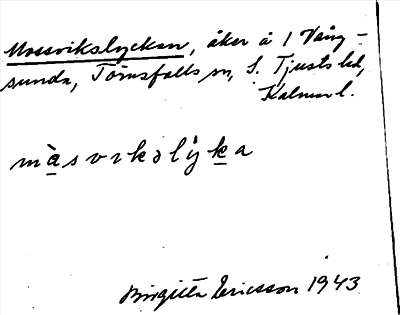 Mossvikslyckan, åker å 1 Väng-
sunda, Törnsfalls sn, S. Tjusts hd,
Kalmar l.
màsvikslỳka
Birgitta Ericsson 1943